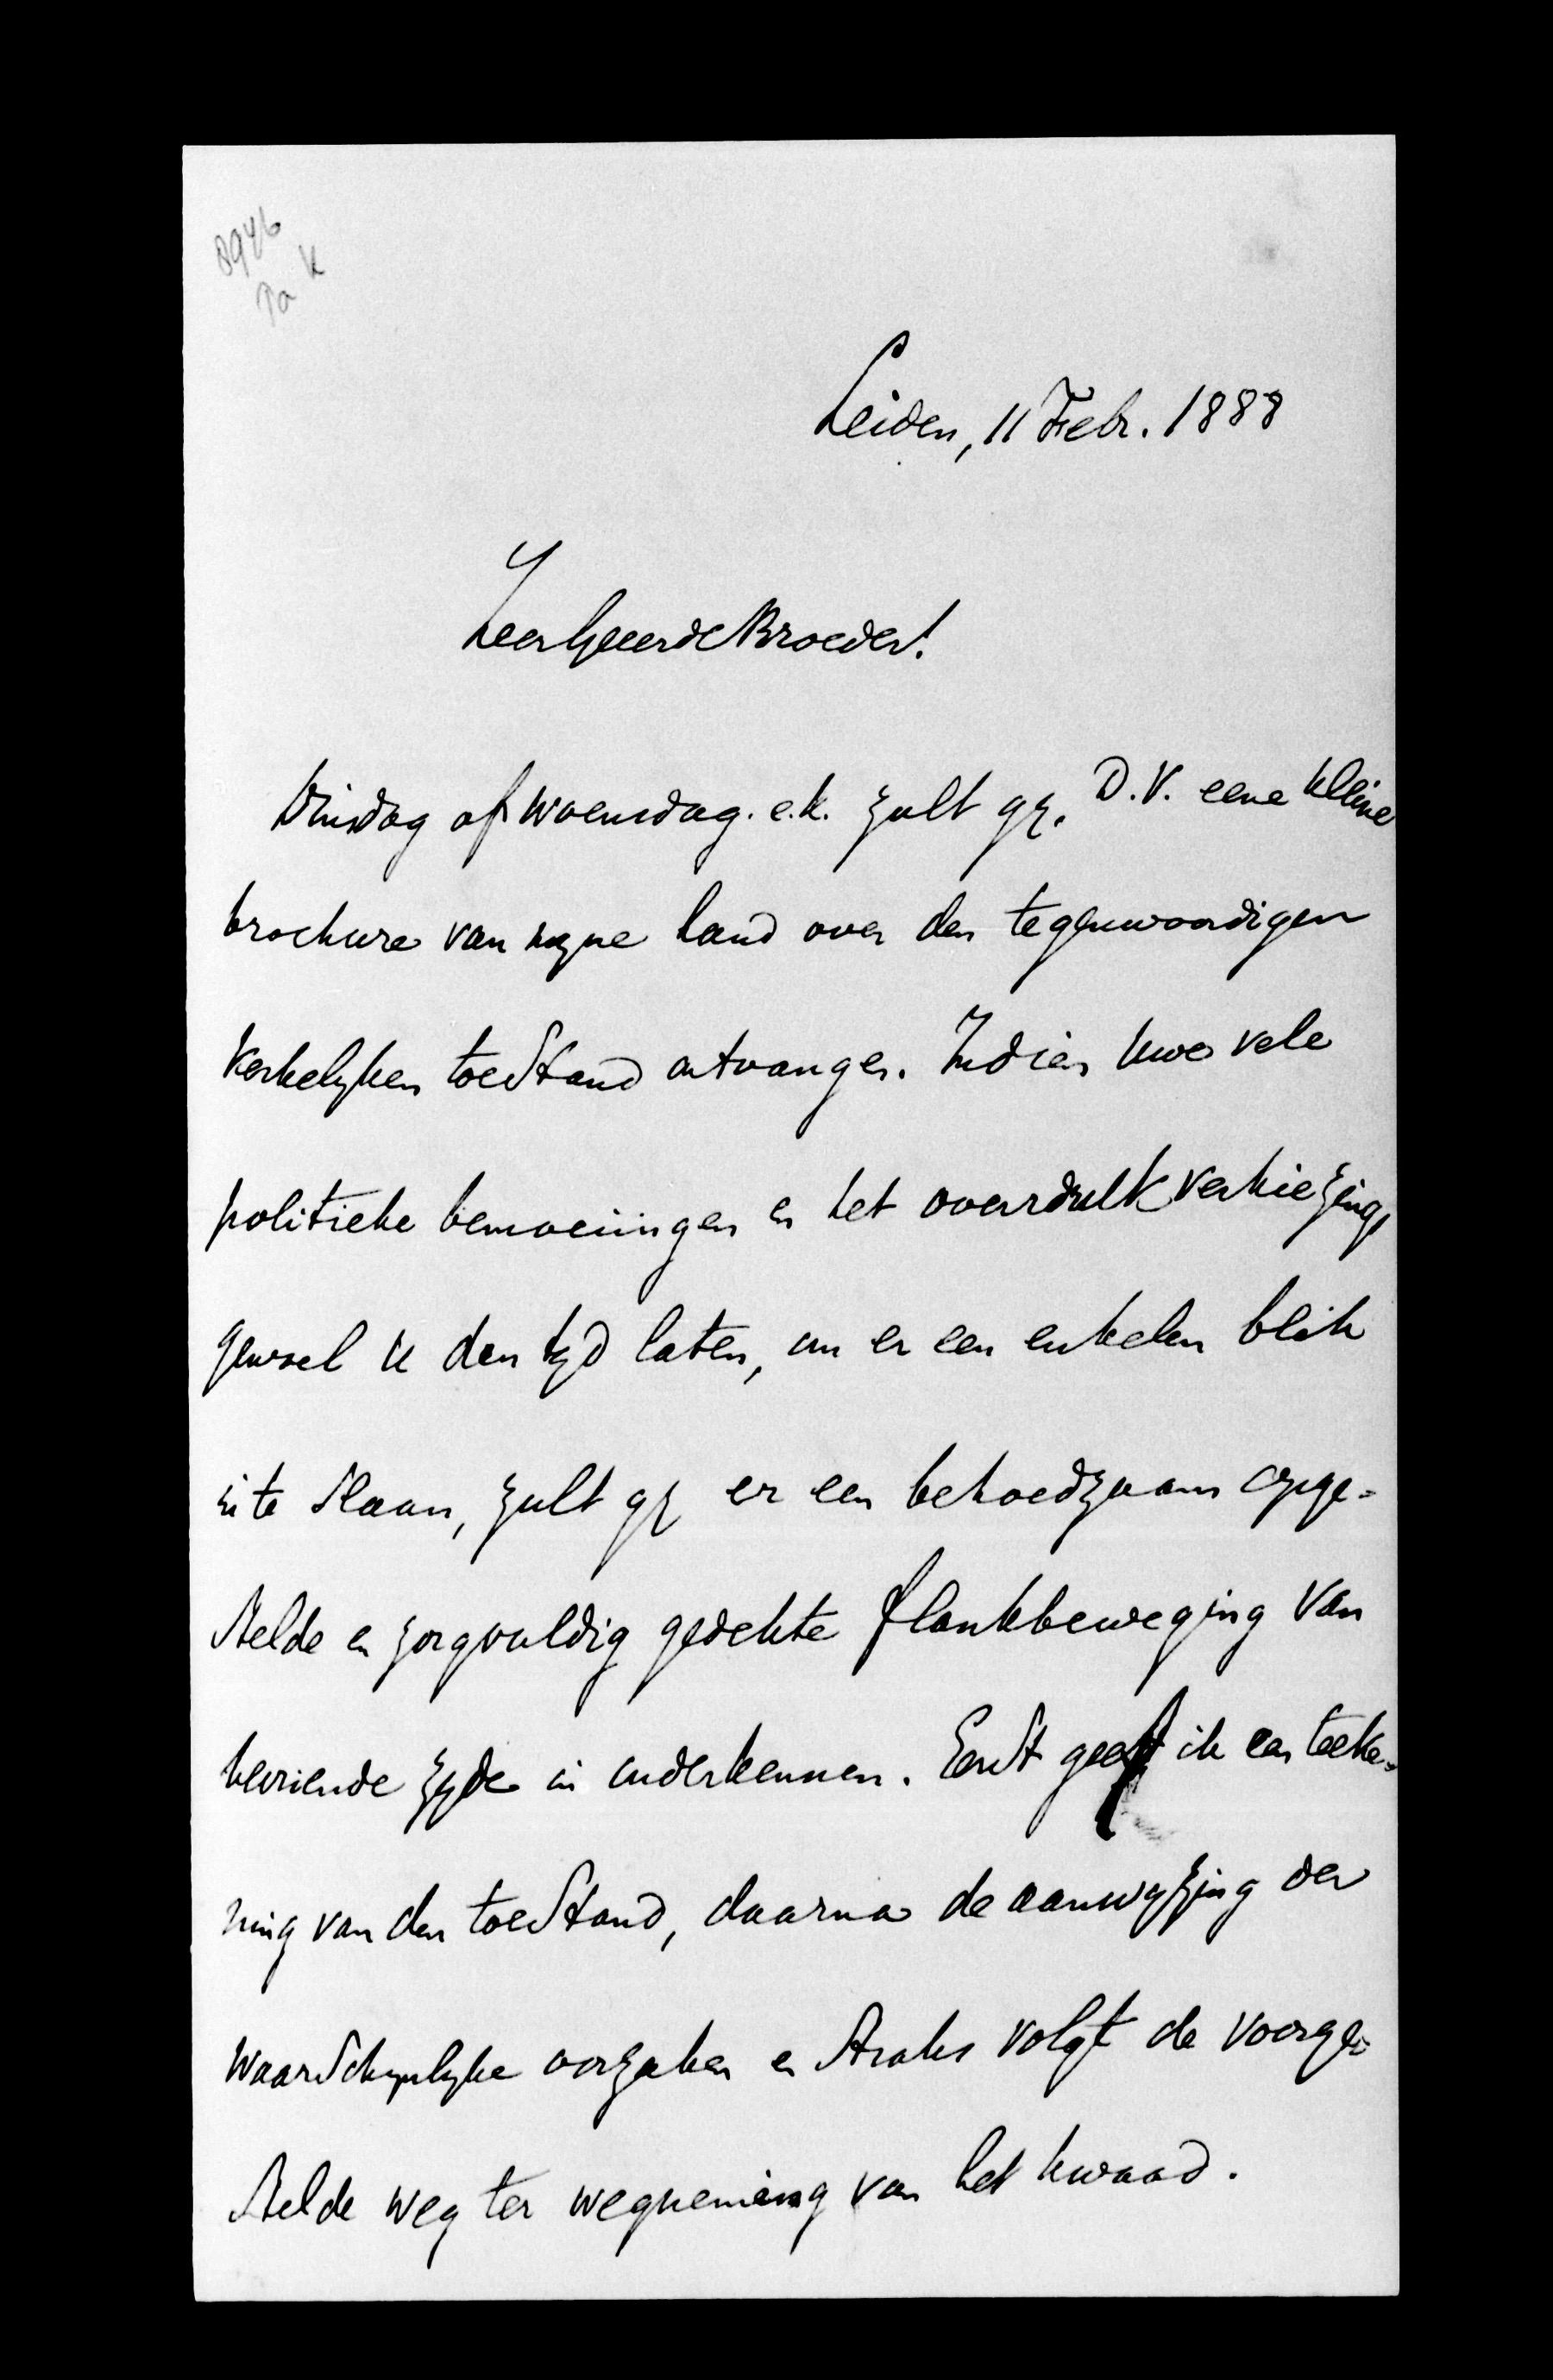 8946
Pa K
Leiden, 11 Febr. 1888
Zeer Geeerde Broeder!
Dinsdag of Woensdag. e.k. zult gy. D.V. eene kleine
brochure van myne hand over den tegenwoordigen
kerkelyken toestand ontvangen. Indien Uwe vele
politieke bemoeiingen en het overdruk verkiezings
gewoel U den tyd laten, om er een enkelen blik
in te slaan, zult gy er een behoedzaam opge-
stelde en zorgvuldig gedekte flankbeweging van
bevriende zyde in onderkennen. Eerst geef ik een teeke-
ning van den toestand, daarna de aanwyzing der
waarschynlyke oorzaken en straks volgt de voorge-
stelde weg ter wegneming van het kwaad.